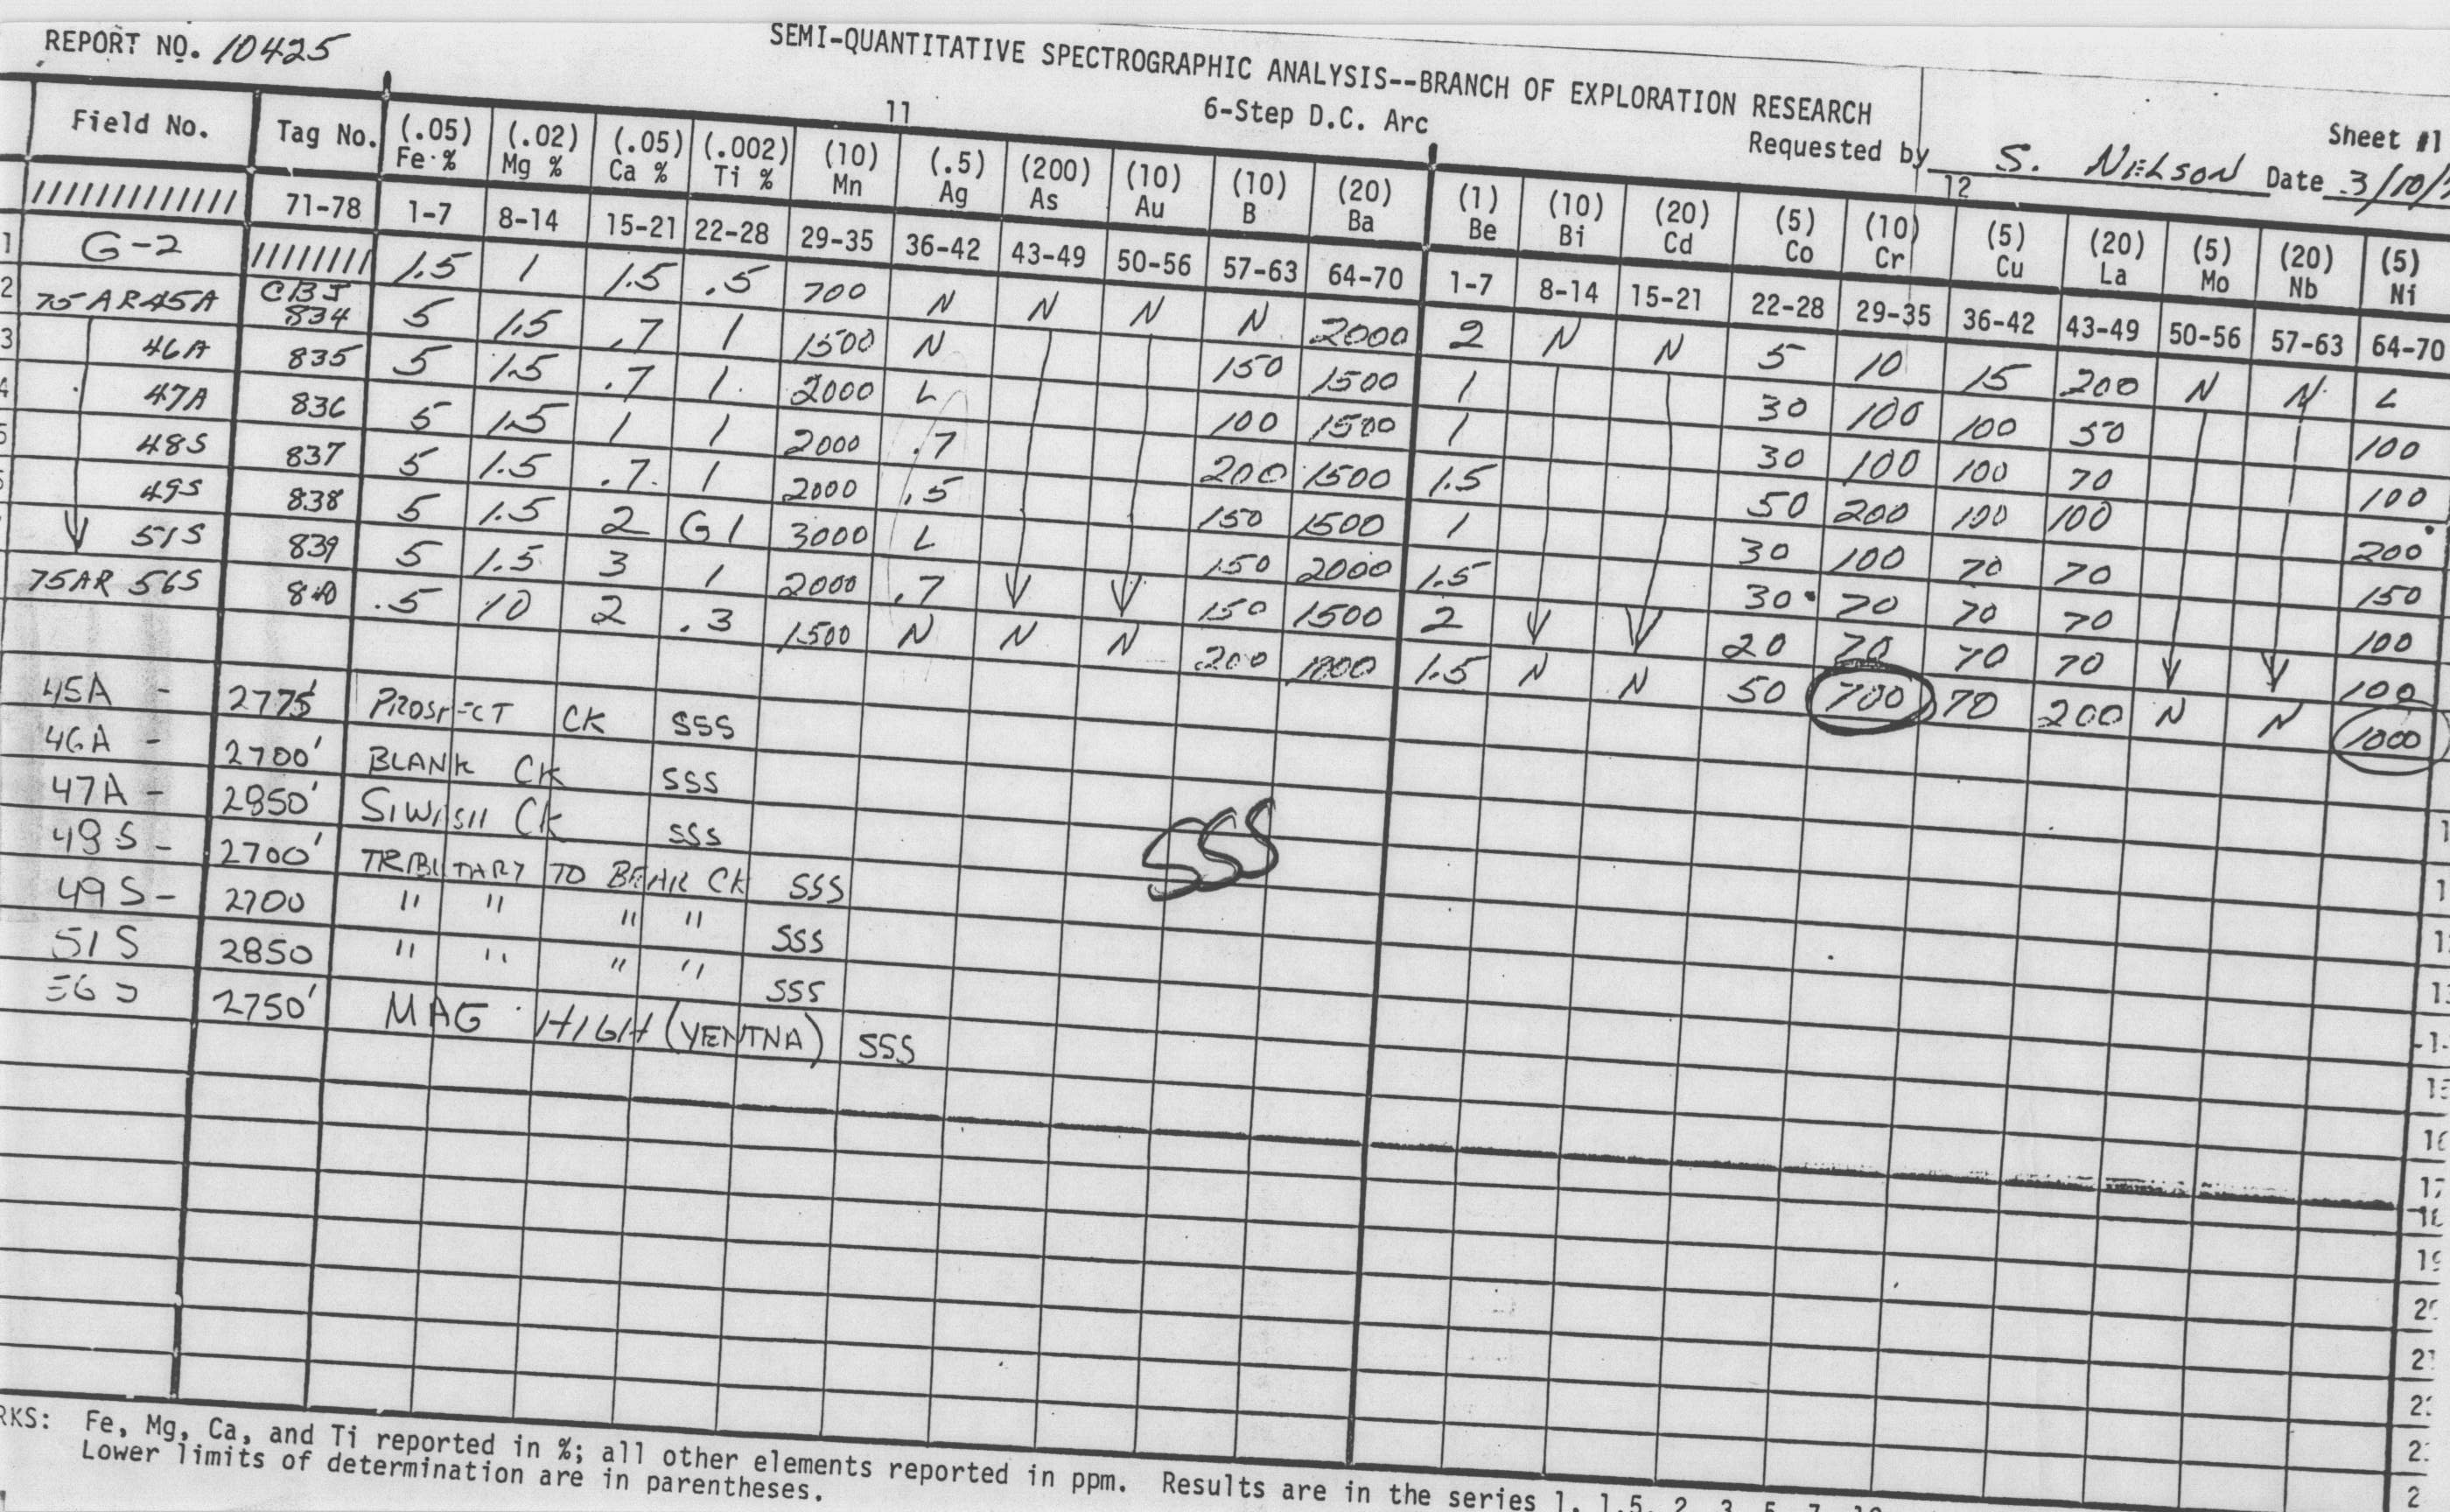 REPORT NO. 10425
SEMI-QUANTITATIVE SPECTROGRAPHIC ANALYSIS--BRANCH OF EXPLORATION RESEARCH
11 6-Step D.C. Arc
Requested by S. NELSON Date 3/10/
Sheet #1
12
Field No. Tag No. (.05) Fe % (.02) Mg % (.05) Ca % (.002) Ti % (10) Mn (.5) Ag (200) As (10) Au (10) B (20) Ba (1) Be (10) Bi (20) Cd (5) Co (10) Cr (5) Cu (20) La (5) Mo (20) Nb (5) Ni
///////////// 71-78 1-7 8-14 15-21 22-28 29-35 36-42 43-49 50-56 57-63 64-70 1-7 8-14 15-21 22-28 29-35 36-42 43-49 50-56 57-63 64-70
1 G-2 //////// 1.5 1 1.5 .5 700 N N N N 2000 2 N N 5 10 15 200 N N L
2 75AR45A CBJ 834 5 1.5 .7 1 1500 N 150 1500 1 30 100 100 50 100
3 46A 835 5 1.5 .7 1 2000 L 100 1500 1 30 100 100 70 100
4 47A 836 5 1.5 1 1 2000 .7 200 1500 1.5 50 200 100 100 200
5 48S 837 5 1.5 .7 1 2000 .5 150 1500 1 30 100 70 70 150
49S 838 5 1.5 2 G1 3000 L 150 2000 1.5 30 70 70 70 100
51S 839 5 1.5 3 1 2000 .7 150 1500 2 20 70 70 70 100
75AR 56S 840 .5 10 2 .3 1500 N N N 200 1000 1.5 N N 50 700 70 200 N N 1000
45A - 2775' PROSPECT CK SSS
46A - 2700' BLANK CK SSS
47A - 2850' SIWASH CK SSS
48S - 2700' TRIBUTARY TO BEAR CK SSS
49S - 2700 " " " " SSS
51S 2850 " " " " SSS
56S 2750' MAG HIGH (YENTNA) SSS
SSS
15
16
17
18
19
RKS: Fe, Mg, Ca, and Ti reported in %; all other elements reported in ppm. Results are in the series 1, 1.5, 2, 3, 5, 7, 10
Lower limits of determination are in parentheses.